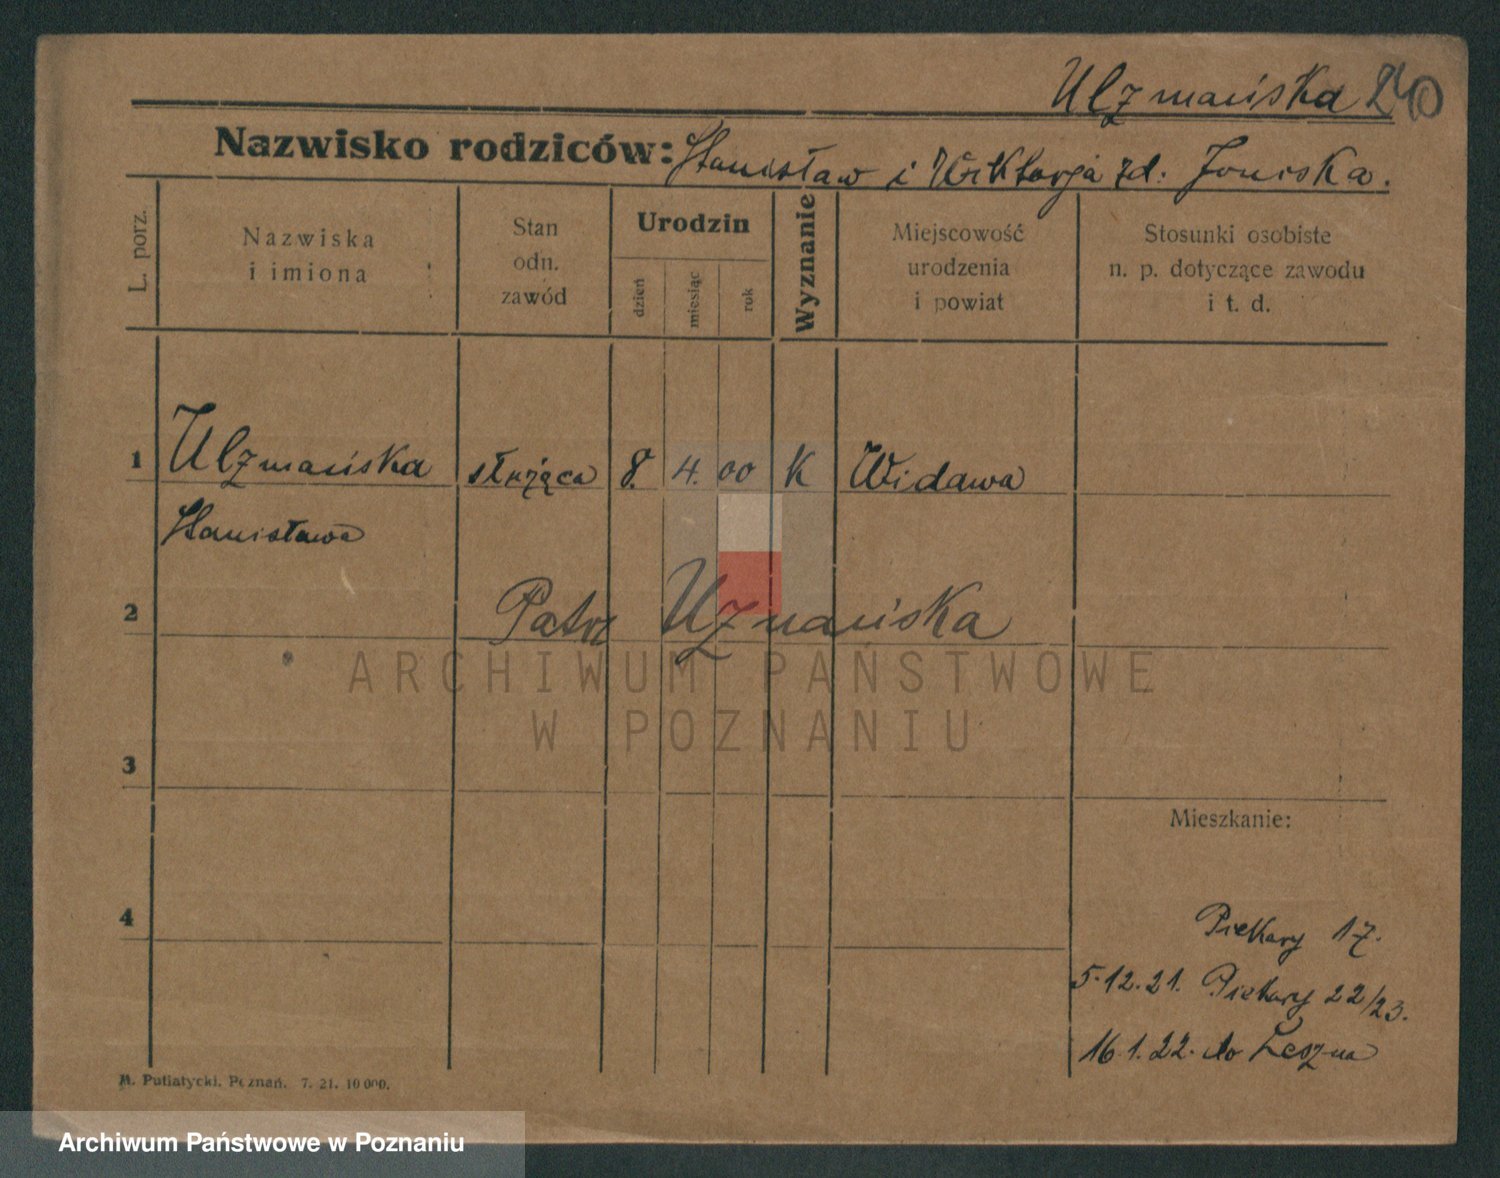 Ulzmańska 240
Nazwisko rodziców: Stanisław i Wiktorja zd: Joniska.
L. porz.
Nazwiska
i imiona
Stan
odn.
zawód
Urodzin
dzień
miesiąc
rok
Wyznanie
Miejscowość
urodzenia
i powiat
Stosunki osobiste
n. p. dotyczące zawodu
i t. d.
1 Ulzmańska służąca 8. 4. 00 K Widawa
Stanisława
2 Patrz Uznańska
ARCHIWUM PAŃSTWOWE
W POZNANIU
3
Mieszkanie:
4
Piekary 17.
5.12.21. Piekary 22/23.
16.1.22. do Leszna
M. Putiatycki, Poznań. 7. 21. 10 000.
Archiwum Państwowe w Poznaniu